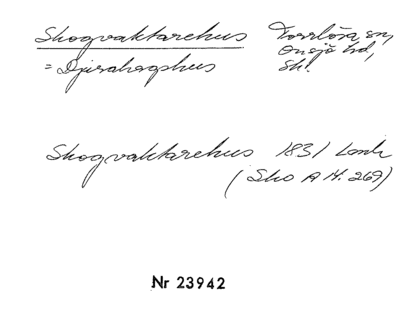 Skogvaktarehus Torrlösa sn,
= Djurahagshus Onsjö hd,
Sk.
Skogvaktarehus 1831 Lantm
(Sko A H. 269)
Nr 23942